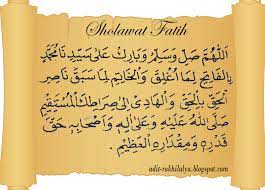 Sholawat Fatih
اَللّٰهُمَّ صَلِّ وَسَلِّمْ وَبَارِكْ عَلَى سَيِّدِنَا مُحَمَّدٍ
اَلْفَاتِحِ لِمَا أُغْلِقَ وَالْخَاتِمِ لِمَا سَبَقَ نَاصِرِ
الْحَقِّ بِالْحَقِّ وَالْهَادِيْ اِلَى صِرَاطِكَ الْمُسْتَقِيْمِ
صَلَّى اللّٰهُ عَلَيْهِ وَعَلَى اٰلِهِ وَاَصْحَابِهِ حَقَّ
قَدْرِهِ وَمِقْدَارِهِ الْعَظِيْمِ.
adit-rukhilalya.blogspot.com